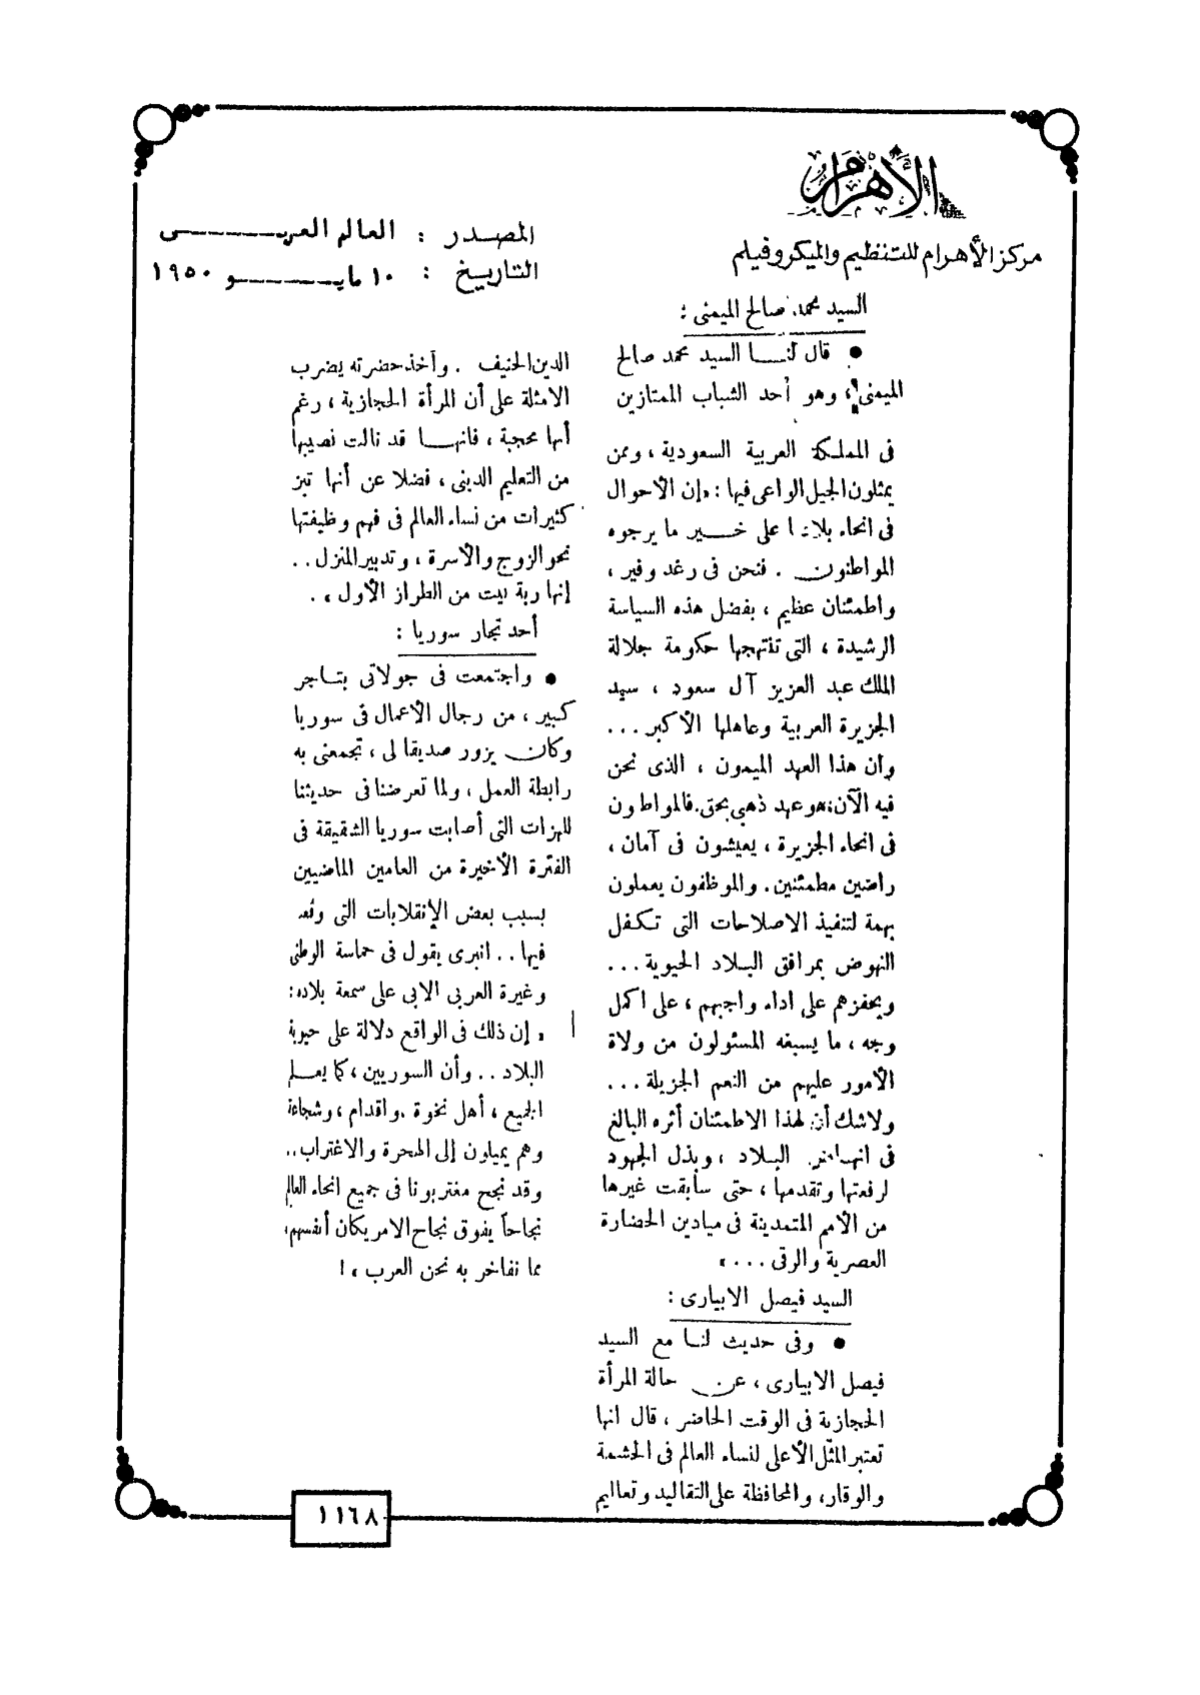 الأهرام
مركز الأهرام للتنظيم والميكروفيلم
المصدر : العالم العربى
التاريخ : ١٠ مايو ١٩٥٠
السيد محمد صالح الميمنى :
● قال لنا السيد محمد صالح
الميمنى ، وهو أحد الشباب الممتازين
فى المملكة العربية السعودية ، وممن
يمثلون الجيل الواعى فيها : « إن الأحوال
فى انحاء بلادنا على خير ما يرجوه
المواطنون . فنحن فى رغد وفير ،
واطمئنان عظيم ، بفضل هذه السياسة
الرشيدة ، التى تنتهجها حكومة جلالة
الملك عبد العزيز آل سعود ، سيد
الجزيرة العربية وعاهلها الأكبر ...
وأن هذا العهد الميمون ، الذى نحن
فيه الآن ، هو عهد ذهبى بحق . فالمواطنون
فى انحاء الجزيرة ، يعيشون فى آمان ،
راضين مطمئنين . والموظفون يعملون
بهمة لتنفيذ الاصلاحات التى تكفل
النهوض بمرافق البلاد الحيوية ...
ويحفزهم على اداء واجبهم ، على اكمل
وجه ، ما يسبغه المسئولون من ولاة
الأمور عليهم من النعم الجزيلة ...
ولاشك أن لهذا الاطمئنان أثره البالغ
فى انهاض البلاد ، وبذل الجهود
لرفعتها وتقدمها ، حتى سابقت غيرها
من الأمم المتمدينة فى ميادين الحضارة
العصرية والرقى .... »
السيد فيصل الابيارى :
● وفى حديث لنا مع السيد
فيصل الابيارى ، عن حالة المرأة
الحجازية فى الوقت الحاضر ، قال انها
تعتبر المثل الأعلى لنساء العالم فى الحشمة
والوقار ، والمحافظة على التقاليد وتعاليم
الدين الحنيف . وأخذ حضرته يضرب
الامثلة على أن المرأة الحجازية ، رغم
أنها محجبة ، فانها قد نالت نصيبها
من التعليم الدينى ، فضلا عن أنها تبز
كثيرات من نساء العالم فى فهم وظيفتها
نحو الزوج والأسرة ، وتدبير المنزل ..
إنها ربة بيت من الطراز الأول » .
أحد تجار سوريا :
● واجتمعت فى جولاتى بتاجر
كبير ، من رجال الأعمال فى سوريا
وكان يزور صديقا لى ، تجمعنى به
رابطة العمل ، ولما تعرضنا فى حديثنا
للهزات التى أصابت سوريا الشقيقة فى
الفترة الأخيرة من العامين الماضيين
بسبب بعض الإنقلابات التى
فيها .. انبرى يقول فى حماسة الوطنى
وغيرة العربى الابى على سمعة بلاده :
« إن ذلك فى الواقع دلالة على حيوية
البلاد .. وأن السوريين ، كما يعلم
الجميع ، أهل نخوة . واقدام ، وشجاعة
وهم يميلون إلى الهجرة والاغتراب ..
وقد نجح مغتربونا فى جميع انحاء العالم
نجاحاً يفوق نجاح الامريكان أنفسهم ،
مما نفاخر به نحن العرب » !
١١٦٨